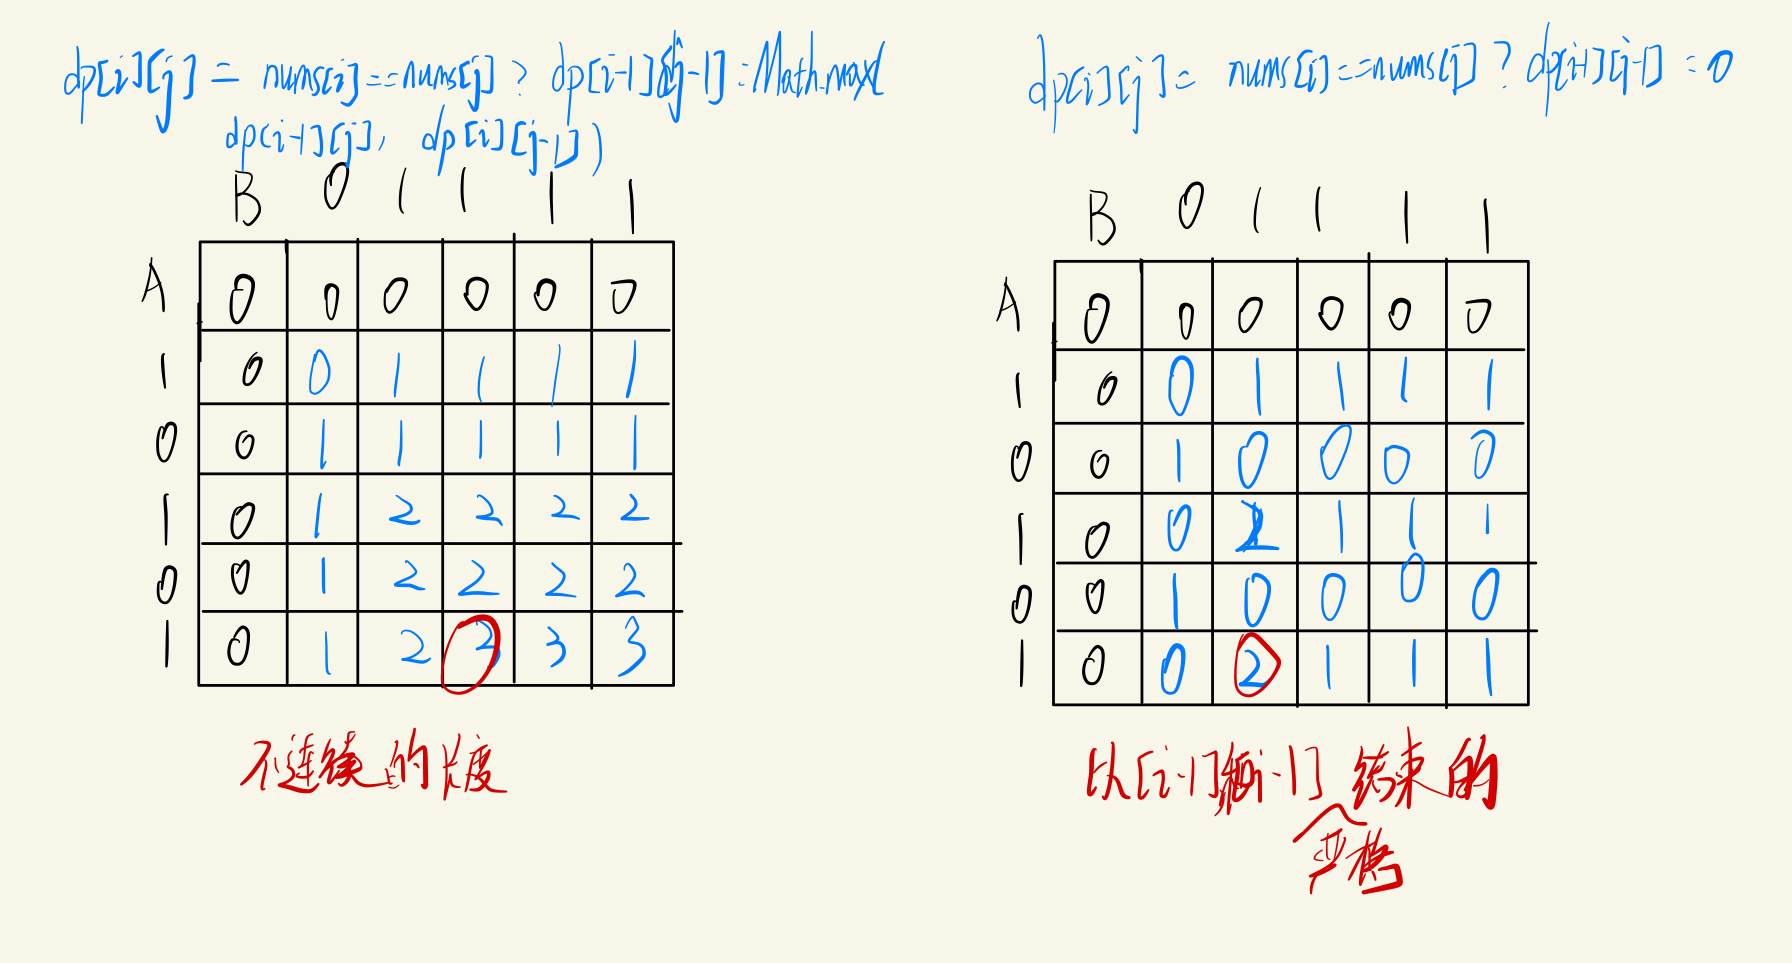 dp[i][j] = nums[i]==nums[j] ? dp[i-1][j-1] : Math.max(
dp[i-1][j], dp[i][j-1])
B 0 1 1 1 1
A 0 0 0 0 0 0
1 0 0 1 1 1 1
0 0 1 1 1 1 1
1 0 1 2 2 2 2
0 0 1 2 2 2 2
1 0 1 2 2 3 3
不连续的长度
dp[i][j] = nums[i]==nums[j] ? dp[i-1][j-1] : 0
B 0 1 1 1 1
A 0 0 0 0 0 0
1 0 0 1 1 1 1
0 0 1 0 0 0 0
1 0 0 2 1 1 1
0 0 1 0 0 0 0
1 0 0 2 1 1 1
以[i-1]和[j-1]结束的
严格